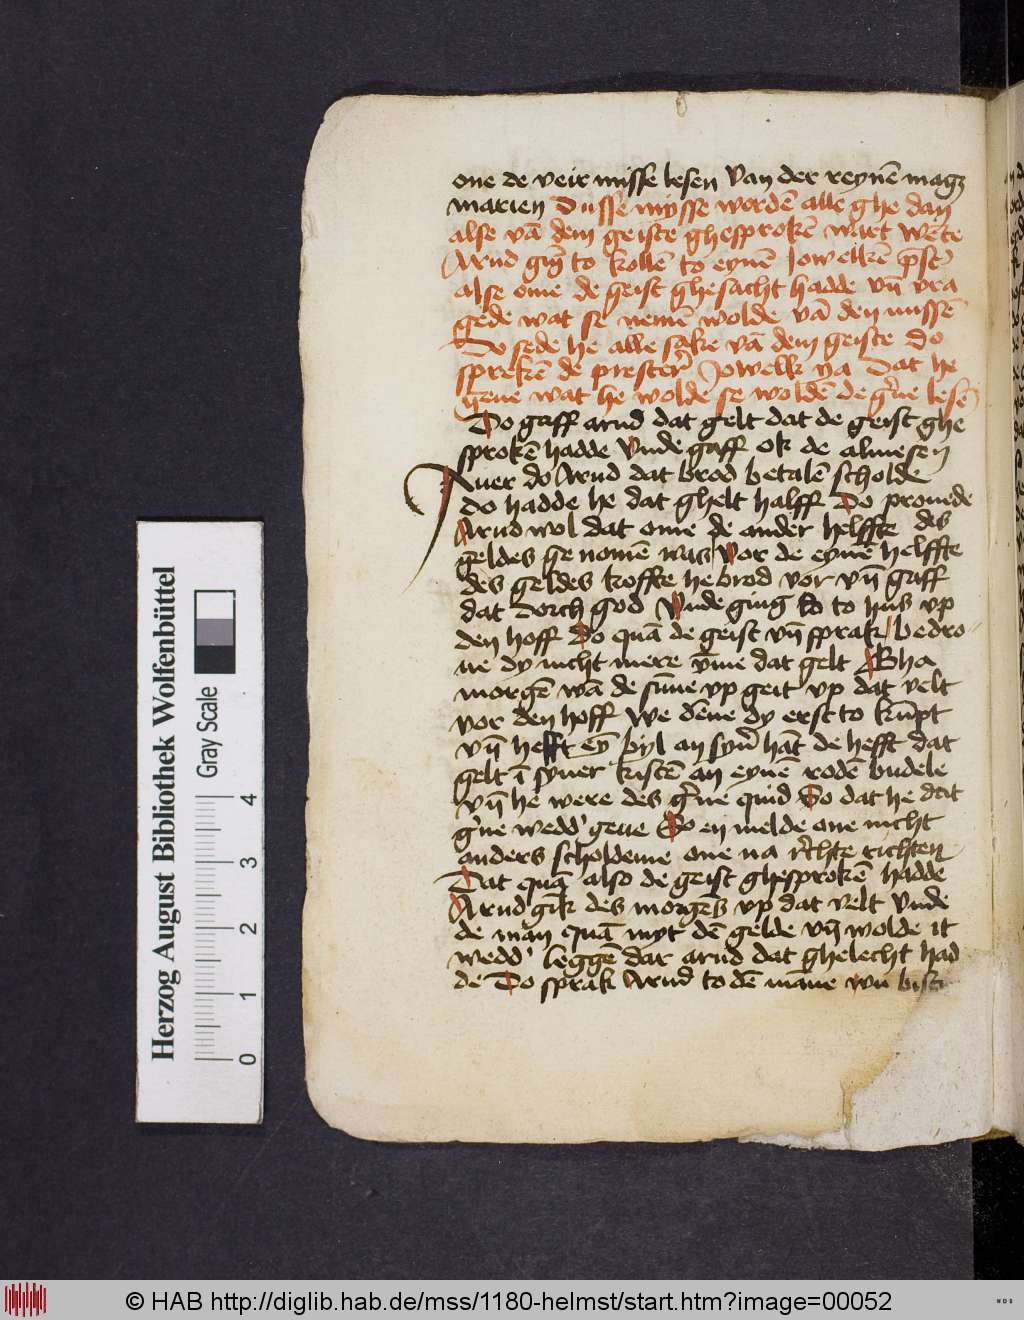 one de veir misse lesen van der reynē mag3
marien Dusse mysse wordē alle ghe dan
alse vā dem geiste ghesprokē wart wēte
Arnd gīg to kollē to eynē Jowelkē p̄ster
alse ome de geist ghesacht hadde vn̄ vra
gede wat se nemē wolde vā den missē
Do sede he alle sake vā dem geiste do
sprekē de prester Jowelk ya dat he
geue wat he wolde se woldē de g'ne lesē
Do gaff arnd dat gelt dat de geist ghe
sprokē hadde vnde gaff ok de almesen
Auer do Arnd dat brod betalē scholde
do hadde he dat ghelt halff Do prouede
Arnd wol dat ome de ander helffte des
geldes ge nomē was vor de eynē helffte
des geldes koffte he brod vor vn̄ gaff
dat dorch god vnde ging so to hus vp
den hoff Do quā de geist vn̄ sprak bedro
ue dy nicht mere vm̄e dat gelt Gha
morgē wā de sūne vp geit vp dat velt
vor den hoff we dēne dy erst to kūpt
vn̄ hefft eȳ byl an syn' hāt de hefft dat
gelt ī syner kistē an eynē rodē budele
vn̄ he were des g'ne quid So dat he dat
g'ne wedd' geue So en melde one nicht
anders scholdeme one na rechte richten
Dat quā also de geist ghesprokē hadde
Arnd gīk des morgēs vp dat velt vnde
de man quā myt dē gelde vn̄ wolde it
wedd' leggē dar arnd dat ghelecht had
de Do sprak Arnd to dē māne wu bistu
Herzog August Bibliothek Wolfenbüttel
Gray Scale
0 1 2 3 4
© HAB http://diglib.hab.de/mss/1180-helmst/start.htm?image=00052